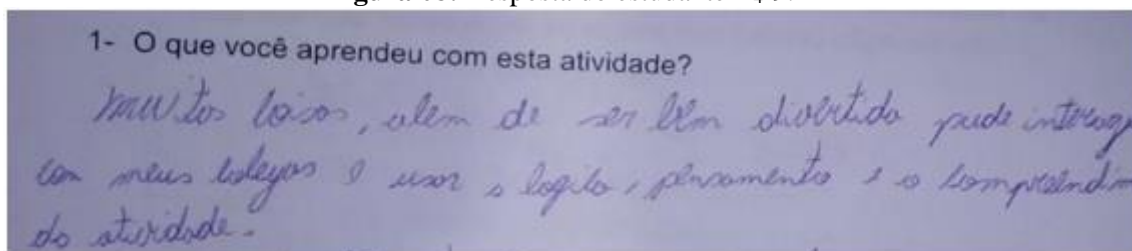 1- O que você aprendeu com esta atividade?
muitas coisas, alem de ser bem divertido pude interag
com meus colegas e usar a logica, pensamento e a compreendim
da atividade.